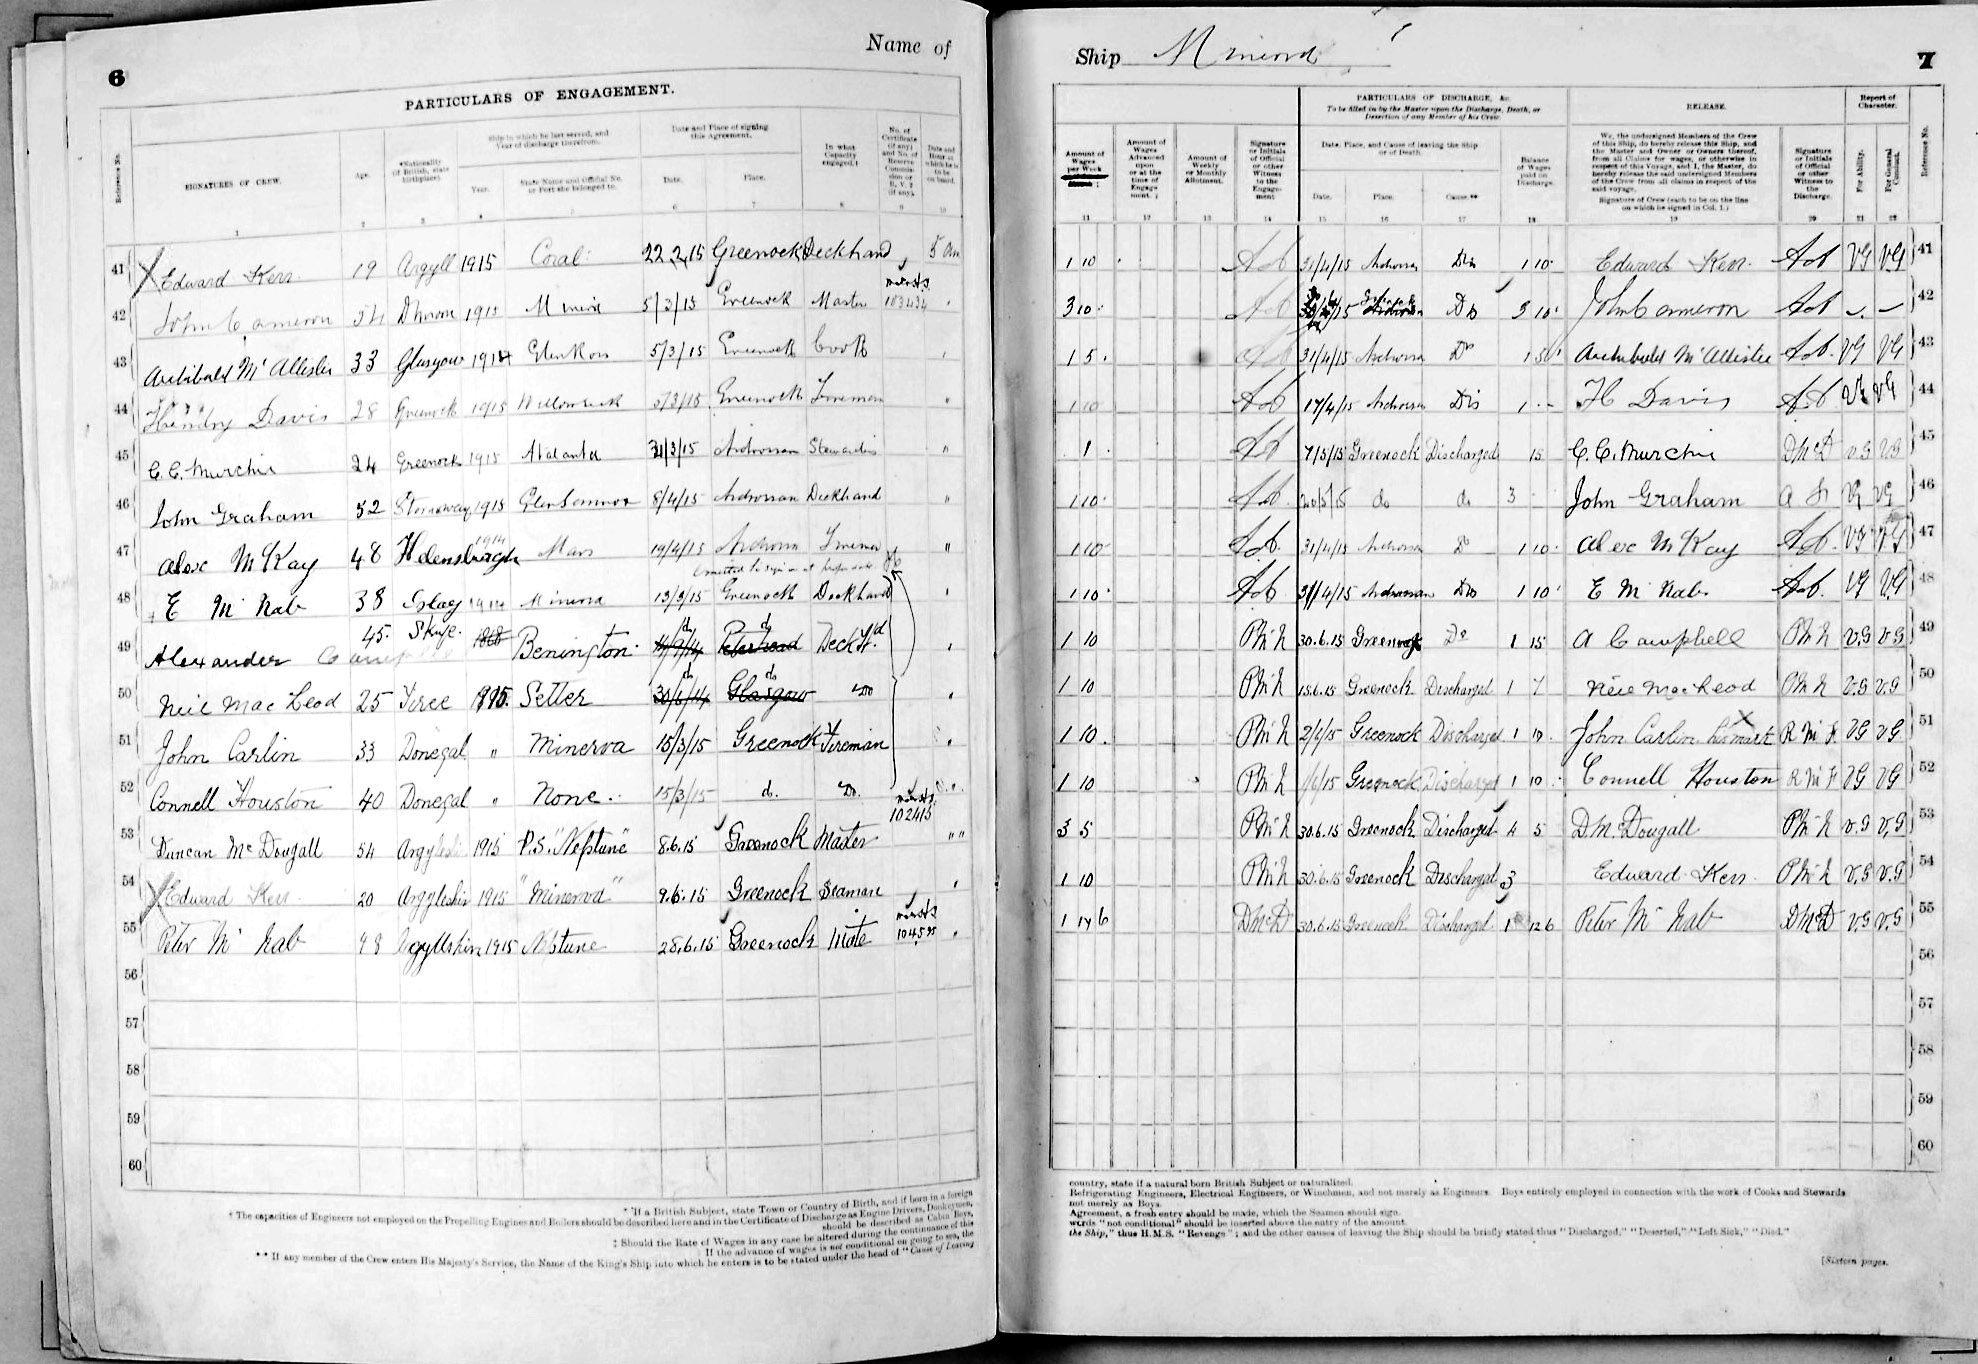 6
Name of
PARTICULARS OF ENGAGEMENT.
Reference No.
SIGNATURES OF CREW.
Age.
*Nationality (If British, state birthplace).
Ship in which he last served, and Year of discharge therefrom.
Year.
State Name and Official No. or Port she belonged to.
Date and Place of signing this Agreement.
Date.
Place.
In what Capacity engaged.†
No. of Certificate (if any) and No. of Reserve Commission or R.V. 2 (if any).
Date and Hour at which he is to be on board.
1 2 3 4 5 6 7 8 9 10
41 Edward Kerr 19 Argyll 1915 Coral 22.2.15 Greenock Deckhand 5 am
42 John Cameron 1915 5/3/15 Greenock Master 103434
43 Archibald McAllister 33 Glasgow 1914 Glen Ross 5/3/15 Greenock Cook
44 Hendry Davis 28 Greenock 1915 5/3/15 Greenock Fireman "
45 C. C. Murchie 24 Greenock 1915 Atalanta 31/3/15 Ardrossan "
46 John Graham 52 Stornoway 1915 8/4/15 Ardrossan Deckhand "
47 Alex McKay 48 Helensburgh 1914 Mars 19/4/15 Fireman "
48 E McNab 38 Islay 1914 Minerva 13/3/15 Greenock Deckhand
49 Alexander Campbell 45. Skye. Benington Deck Hd.
50 Neil MacLeod 25 Tiree 1915. Setter Glasgow Do
51 John Carlin 33 Donegal " Minerva 15/3/15 Greenock Fireman
52 Connell Houston 40 Donegal " None. 15/3/15 do. Do.
53 Duncan McDougall 54 1915 P.S. "Neptune" 8.6.15 Greenock Master 102415 " "
54 Edward Kerr 20 Argyleshire 1915 "Minerva" 9.6.15 Greenock Seaman
55 Peter McNab Argyllshire 1915 Neptune 28.6.15 Greenock Mate 104595
56
57
58
59
60
* If a British Subject, state Town or Country of Birth, and if born in a foreign
† The capacities of Engineers not employed on the Propelling Engines and Boilers should be described here and in the Certificate of Discharge as Engine Drivers, Donkeymen,
should be described as Cabin Boys,
‡ Should the Rate of Wages in any case be altered during the continuance of this
If the advance of wages is not conditional on going to sea, the
** If any member of the Crew enters His Majesty's Service, the Name of the King's Ship into which he enters is to be stated under the head of "Cause of Leaving
Ship Minerva
7
PARTICULARS OF DISCHARGE, &c.
To be filled in by the Master upon the Discharge, Death, or Desertion of any Member of his Crew.
RELEASE.
Report of Character.
Amount of Wages per Week
Amount of Wages Advanced upon or at the time of Engagement.
Amount of Weekly or Monthly Allotment.
Signature or Initials of Official or other Witness to the Engagement
Date, Place, and Cause of leaving the Ship or of Death.
Date.
Place.
Cause.**
Balance of Wages paid on Discharge.
We, the undersigned Members of the Crew of this Ship, do hereby release this Ship, and the Master and Owner or Owners thereof, from all Claims for wages, or otherwise in respect of this Voyage, and I, the Master, do hereby release the said undersigned Members of the Crew from all claims in respect of the said voyage.
Signature of Crew (each to be on the line on which he signed in Col. 1.)
Signature or Initials of Official or other Witness to the Discharge.
For Ability.
For General Conduct.
Reference No.
11 12 13 14 15 16 17 18 19 20 21 22
1 10 31/4/15 Ardrossan Dis 1 10 Edward Kerr VG VG 41
3 10 John Cameron 42
1 5 31/4/15 Ardrossan Do Archibald McAllister VG VG 43
1 10 17/4/15 Ardrossan Dis H Davis VG VG 44
1 7/5/15 Greenock Discharged 15 C. C. Murchie DMcD VG VG 45
1 10 do do 3 John Graham VG VG 46
1 10 31/4/15 Ardrossan Do 1 10 Alex McKay VG VG 47
1 10 31/4/15 Ardrossan Dis 1 10 E McNab VG VG 48
1 10 PMcN 30.6.15 Greenock Do 1 15 A Campbell PMcN V.G V.G 49
1 10 PMcN 15.6.15 Greenock Discharged 1 7 Neil MacLeod PMcN V.G V.G 50
1 10 PMcN Greenock Discharged 1 10 John Carlin his X mark VG VG 51
1 10 PMcN Greenock Discharged 1 10 Connell Houston VG VG 52
3 5 PMcN 30.6.15 Greenock Discharged 4 5 D. McDougall PMcN V.G V.G 53
1 10 PMcN 30.6.15 Greenock Discharged 3 Edward Kerr PMcN V.G V.G 54
1 17 6 DMcD 30.6.15 Greenock Discharged 1 12 6 Peter McNab DMcD V.G V.G 55
56
57
58
59
60
country, state if a natural born British Subject or naturalized.
Refrigerating Engineers, Electrical Engineers, or Winchmen, and not merely as Engineers. Boys entirely employed in connection with the work of Cooks and Stewards
not merely as Boys.
Agreement, a fresh entry should be made, which the Seamen should sign.
words "not conditional" should be inserted above the entry of the amount.
the Ship," thus H.M.S. "Revenge"; and the other causes of leaving the Ship should be briefly stated thus "Discharged," "Deserted," "Left Sick," "Died."
[Sixteen pages.